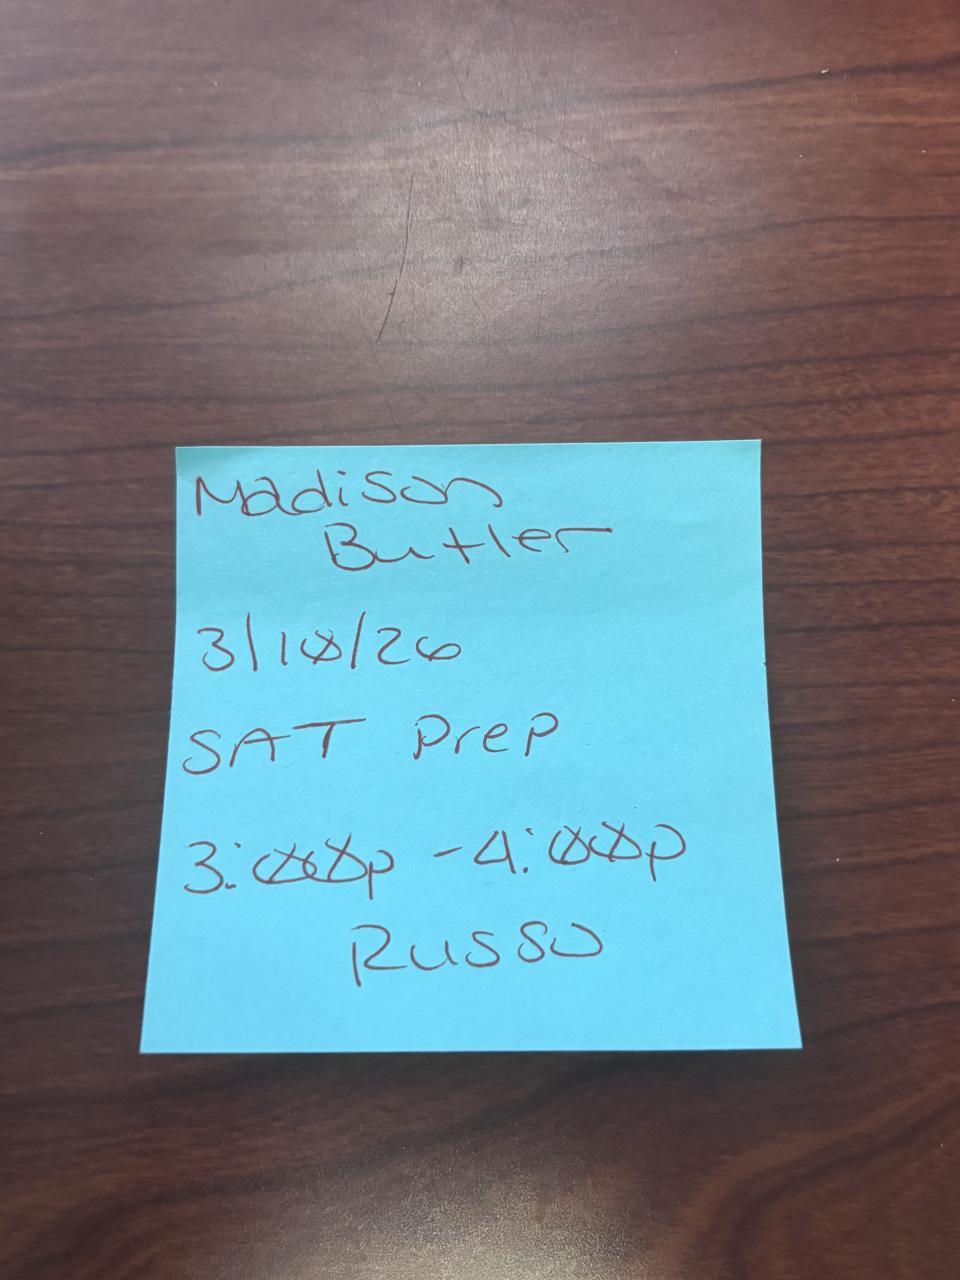 Madison
Butler
3/10/26
SAT Prep
3:00p - 4:00p
Russo